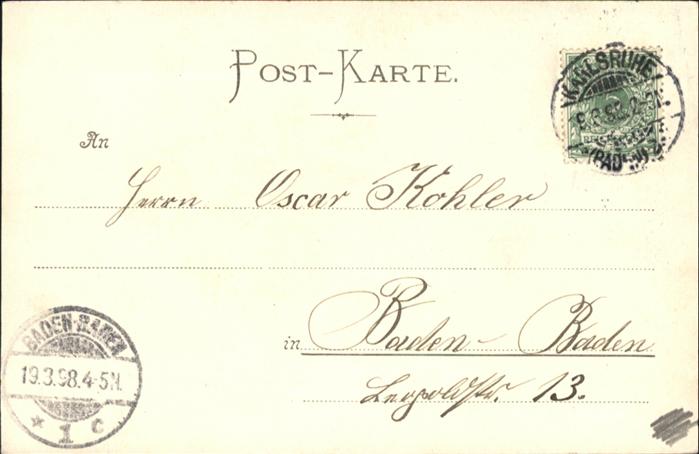 POST-KARTE.
KARLSRUHE
(BADEN)
An
Herrn Oscar Kohler
in Baden-Baden
Leopoldstr. 13.
BADEN-BADEN
19.3.98.4-5N.
* 1 c